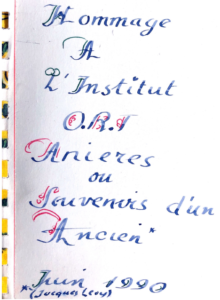 Hommage
A
L'Institut
O.R.T
Anieres
ou
Souvenirs d'un
Ancien*
Juin 1990
*(Jacques Levy)